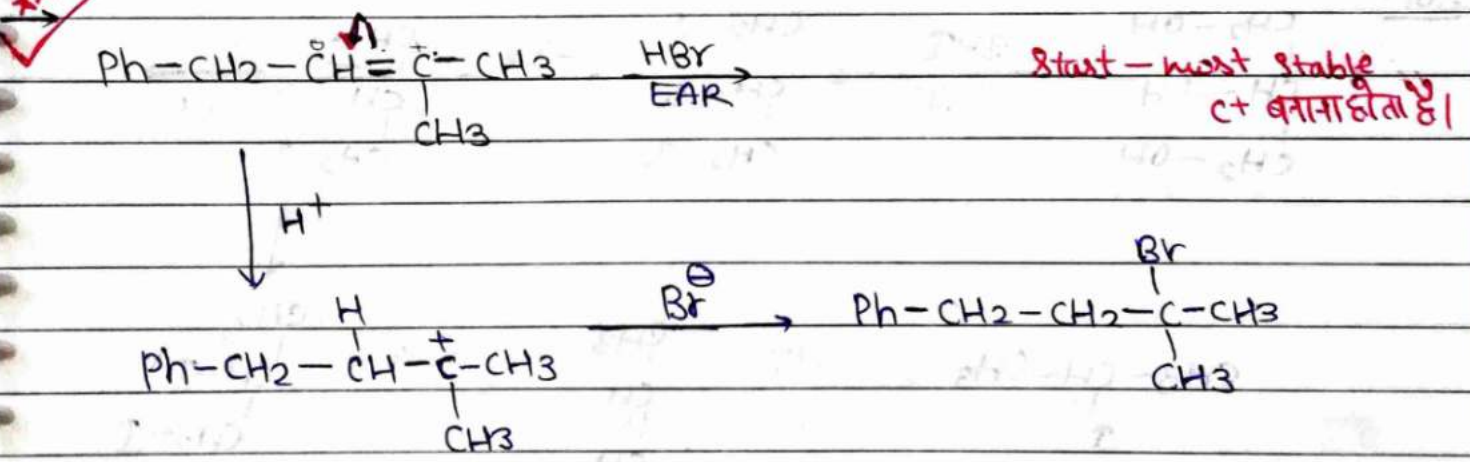 Ph-CH2-CH=C-CH3 HBr
EAR
CH3
Start - most stable
C+ बनाना होता है।
H+
H
Ph-CH2-CH-C-CH3
+
CH3
Br⊖
Br
Ph-CH2-CH2-C-CH3
CH3